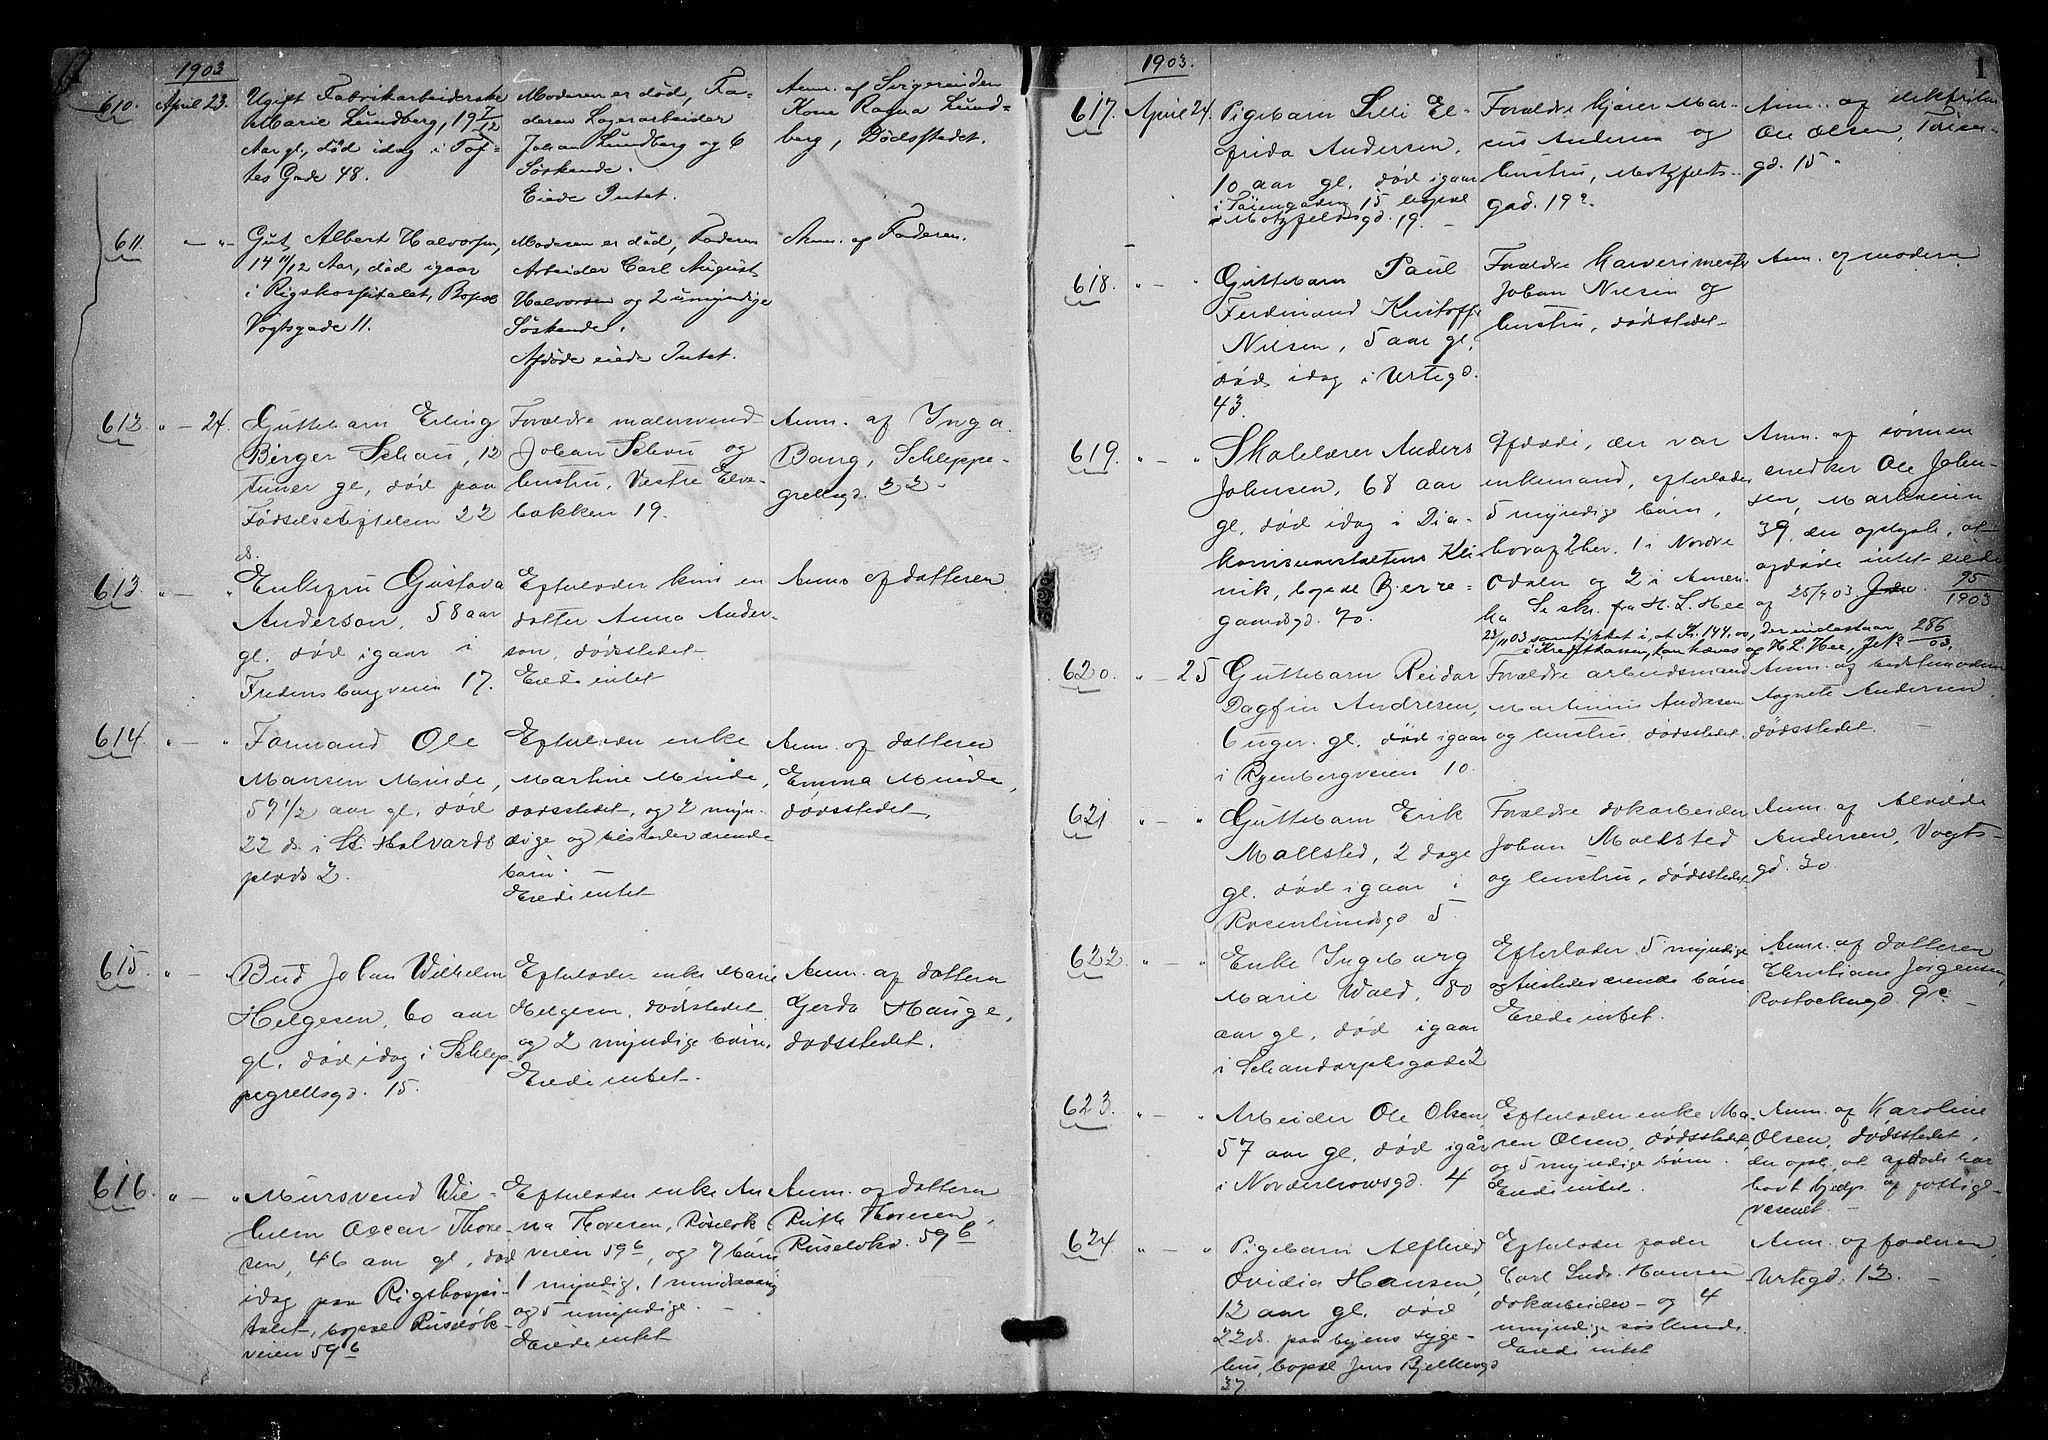 1903
610. April 23. Ugift Fabrikarbeiderske
Marie Lundberg, 19 7/12
Aar gl., død idag i Tof-
tes Gade 48.
Moderen er død, Fa-
deren Lagerarbeider
Johan Lundberg og 6
Søskende.
Eiede Intet.
Anm. af Svigerinden
Kone Ragna Lund-
berg, Dødsstedet.
611. — „ Gut Albert Halvorsen,
14 11/12 Aar, død igaar
i Rigshospitalet, Bopæl
Vogtsgade 11.
Moderen er død, Faderen
Arbeider Carl August
Halvorsen og 2 umyndige
Søskende.
Afdøde eiede Intet.
Anm. af Faderen.
612 „ — 24. Guttebarn Erling
Birger Schou, 12
timer gl., død paa
Fødselsstiftelsen 22
ds.
Forældre malersvend
Johan Schou og
hustru, Vestre Elve-
bakken 19.
Anm. af Inga
Bang, Schleppe-
grellsgd. 22
613. „ — „ Enkefru Gustava
Anderson, 58 aar
gl. død igaar i
Fredensborgveien 17.
Efterlader kun en
datter Anna Ander-
son, dødsstedet.
Eiede intet
Anm. af datteren
614. „ — „ Formand Ole
Hansen Minde,
57 1/2 aar gl., død
22 ds. i St. Halvards
plads 2.
Efterlader enke
Martine Minde,
dødsstedet, og 2 myn-
dige og tilstedeværende
børn.
Eiede intet
Anm. af datteren
Emma Minde,
dødsstedet.
615. „ — „ Bud Johan Wilhelm
Helgesen, 60 aar
gl., død idag i Schlep
pegrellsgd. 15.
Efterlader enke Marie
Helgesen, dødsstedet
og 2 myndige børn.
Eiede intet.
Anm. af datteren
Gerda Hauge,
dødsstedet.
616. „ — „ Mursvend Wil-
helm Oscar Thore-
sen, 46 aar gl., død
idag paa Rigshospi-
talet, bopæl Ruseløk-
veien 59 b
Efterlader enke An
na Thoresen, Ruseløk
veien 59 b, og 7 børn
1 myndig, 1 mindreaarig
og 5 umyndige.
Eiede intet
Anm. af datteren
Ruth Thoresen,
Ruseløkv. 59 b
1903. 1
617. April 24. Pigebarn Lilli El-
frida Andersen,
10 aar gl. død igaar
i Tøiengaden 15 bopæl
Motzfeldsgd. 19.
Forældre kjører Mar-
cus Andersen og
hustru, Motzfelds-
gad. 19.
Anm. af
Ole Olsen, Tøien-
gd. 15.
618. „ — „ Guttebarn Paul
Ferdinand Kristoffer
Nilsen, 5 aar gl.
død idag i Urtegd.
43.
Forældre
Johan Nilsen og
hustru, dødsstedet
Anm. af moderen
619. „ — „ Skolelærer Anders
Johnsen, 68 aar
gl., død idag i Dia-
konisseanstaltens Kli
nik, bopæl Bjerre-
gaardsgd. 70.
Afdøde, der var
enkemand, efterlader
5 myndige børn,
hvoraf 2 her, 1 i Nordre
Odalen og 2 i Amerika
Anm. af sønnen
snedker Ole John-
sen, Markveien
39, der opgab, at
afdøde intet eiede
Se skr. fra H. L. Hee
af 25/4 03 95/1903
23/11 03 samtykket i, at Kr. 144.00, der indestaar
i Kreditkassen, kan hæves af H. L. Hee, J. No. 286/03.
620. „ — 25 Guttebarn Reidar
Dagfin Andresen,
6 uger gl. død igaar
i Ryenbergveien 10
Forældre arbeidsmand
Martinius Andresen
og hustru, dødsstedet.
Anm. af bedstemoderen
Aagnete Andersen
dødsstedet.
621 „ — „ Guttebarn Erik
Mollsted, 2 dage
gl. død igaar i
Rosenlundsgd. 5
Forældre dokarbeider
Johan Mollsted
og hustru, dødsstedet
Anm. af Alvilde
Andersen, Vogts-
gd. 30.
622 „ — „ Enke Ingeborg
Marie Wold, 80
aar gl., død igaar
i Schandorphsgade 2
Efterlader 5 myndige
og tilstedeværende børn
Eiede intet.
Anm. af datteren
Christiane Jørgensen,
Rostockergd. 9 c
623. „ — „ Arbeider Ole Olsen,
57 aar gl. død igår
i Norderhovsgd. 4
Efterlader enke Ma-
ren Olsen, dødsstedet
og 5 myndige børn.
Eiede intet.
Anm. af Karoline
Olsen, dødsstedet,
der opl. at afdøde har
havt hjælp af fattig-
væsenet.
624 „ — „ Pigebarn Alfhild
Ovidia Hansen,
12 aar gl. død
22 ds. paa byens syge-
hus, bopæl Jens Bjelkesgd
37.
Efterlader fader
Carl Ludv. Hansen
dokarbeider og 4
umyndige søskende.
Eiede intet
Anm. af faderen,
Urtegd. 12.